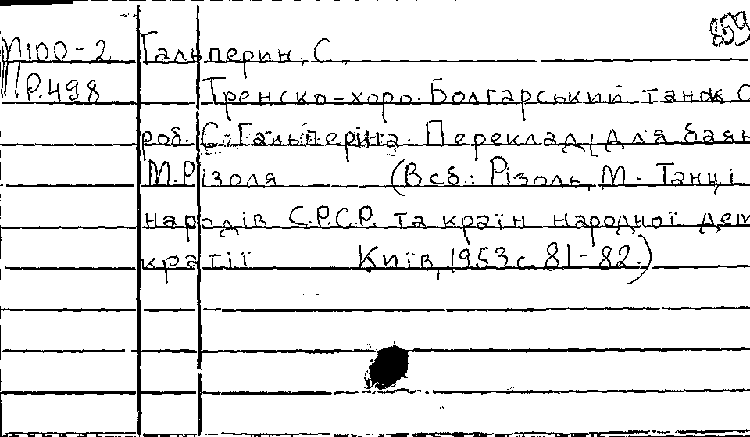 859
М100-2 Гальперин, С.
Р.498 Тренско-хоро. Болгарський танок. О
роб. С. Гальперіна. Переклад для баян
М. Різоля (В сб.: Різоль, М. Танці
народів С.Р.С.Р. та країн народної дем
кратії Київ, 1953 с. 81-82.)